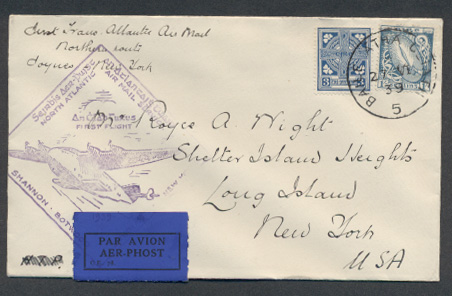 First Trans. Atlantic Air Mail
Northern route
Foynes New York
Seirbís Aer-Phost
NORTH ATLANTIC
AIR MAIL
An Céad Turus
FIRST FLIGHT
SHANNON - BOTW
NEW
3
BAILE
39
5
Royce A. Wight
Shelter Island Heights
Long Island
New York
USA
PAR AVION
AER-PHOST